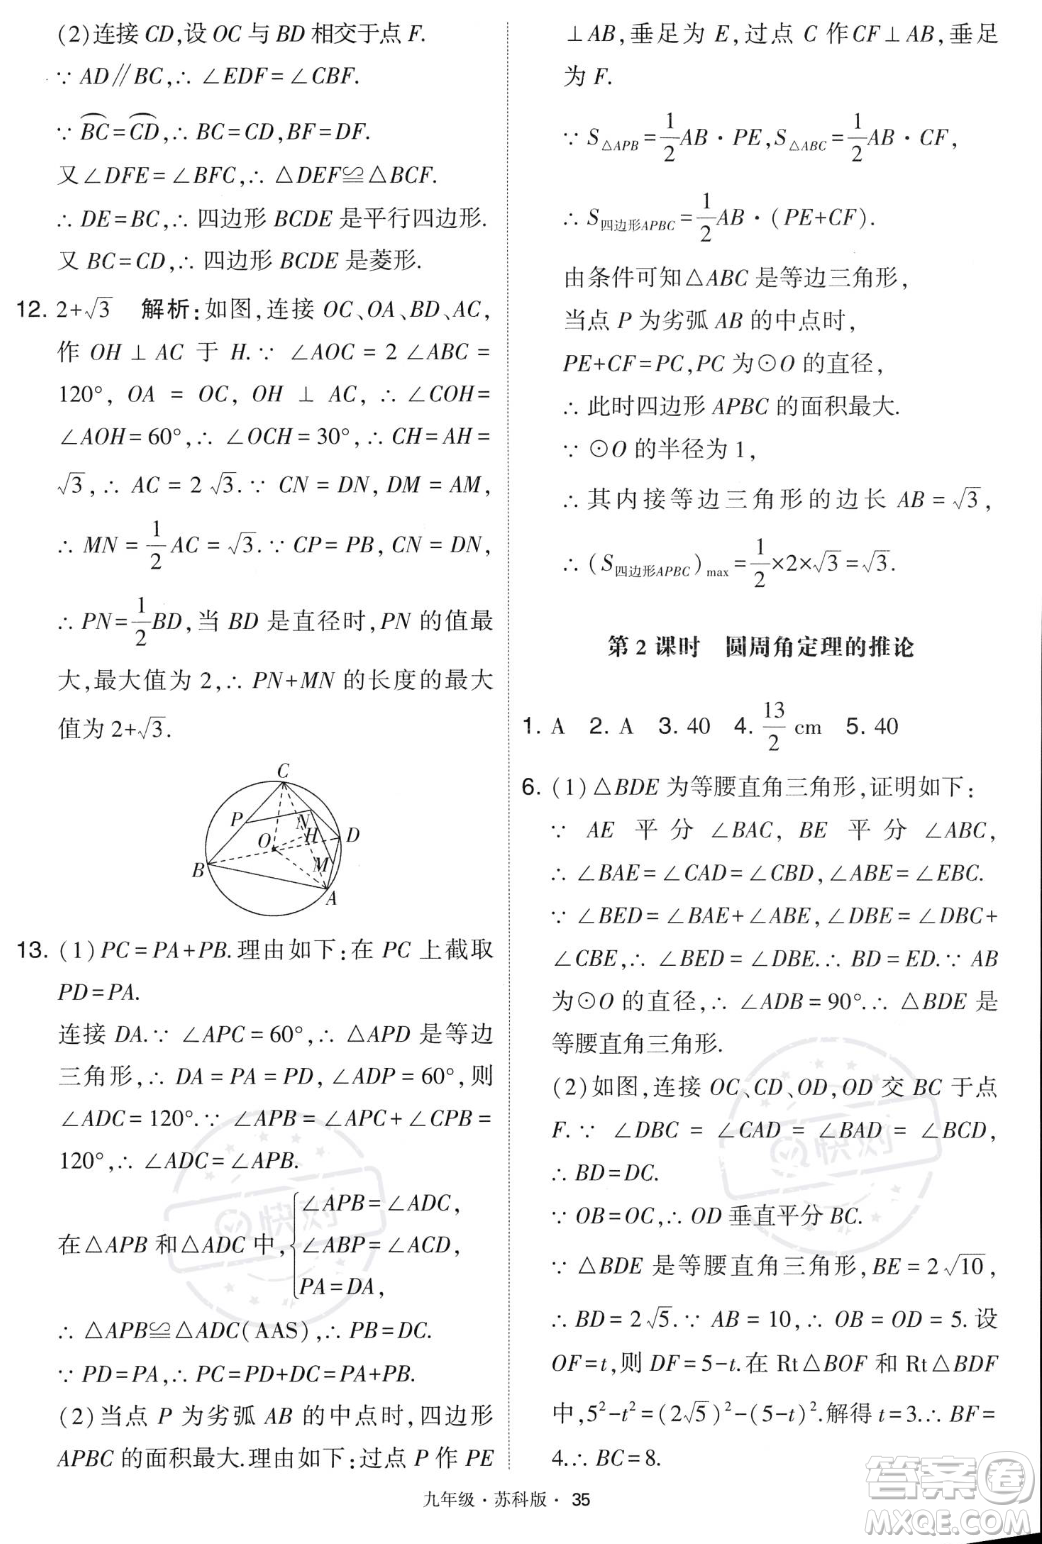 (2)连接 CD,设 OC 与 BD 相交于点 F.
∵ AD∥BC,∴ ∠EDF=∠CBF.
∵ B͡C=C͡D,∴ BC=CD,BF=DF.
又∠DFE=∠BFC,∴ △DEF≌△BCF.
∴ DE=BC,∴ 四边形 BCDE 是平行四边形.
又 BC=CD,∴ 四边形 BCDE 是菱形.
12. 2+√3 解析:如图,连接 OC、OA、BD、AC,
作 OH ⊥ AC 于 H.∵ ∠AOC = 2 ∠ABC =
120°, OA = OC, OH ⊥ AC,∴ ∠COH=
∠AOH=60°,∴ ∠OCH=30°,∴ CH=AH=
√3,∴ AC = 2 √3.∵ CN = DN, DM = AM,
∴ MN = 1/2 AC = √3.∵ CP = PB, CN = DN,
∴ PN= 1/2 BD,当 BD 是直径时,PN 的值最
大,最大值为 2,∴ PN+MN 的长度的最大
值为 2+√3.
C
P
N
O
H
D
B
M
A
13. (1)PC=PA+PB.理由如下:在 PC 上截取
PD=PA.
连接 DA.∵ ∠APC=60°,∴ △APD 是等边
三角形,∴ DA=PA=PD,∠ADP=60°,则
∠ADC=120°.∵ ∠APB=∠APC+∠CPB=
120°,∴ ∠ADC=∠APB.
在△APB 和△ADC 中,{∠APB=∠ADC,
∠ABP=∠ACD,
PA=DA,
∴ △APB≌△ADC(AAS),∴ PB=DC.
∵ PD=PA,∴ PC=PD+DC=PA+PB.
(2)当点 P 为劣弧 AB 的中点时,四边形
APBC 的面积最大.理由如下:过点 P 作 PE
⊥AB,垂足为 E,过点 C 作CF⊥AB,垂足
为 F.
∵ S△APB= 1/2 AB·PE,S△ABC= 1/2 AB·CF,
∴ S四边形APBC= 1/2 AB·(PE+CF).
由条件可知△ABC 是等边三角形,
当点 P 为劣弧 AB 的中点时,
PE+CF=PC,PC 为⊙O 的直径,
∴ 此时四边形 APBC 的面积最大.
∵ ⊙O 的半径为 1,
∴ 其内接等边三角形的边长 AB=√3,
∴ (S四边形APBC)max= 1/2×2×√3=√3.
第 2 课时 圆周角定理的推论
1. A 2. A 3. 40 4. 13/2 cm 5. 40
6. (1)△BDE 为等腰直角三角形,证明如下:
∵ AE 平 分 ∠BAC, BE 平 分 ∠ABC,
∴ ∠BAE=∠CAD=∠CBD,∠ABE=∠EBC.
∵ ∠BED=∠BAE+∠ABE,∠DBE=∠DBC+
∠CBE,∴ ∠BED=∠DBE.∴ BD=ED.∵ AB
为⊙O 的直径,∴ ∠ADB=90°.∴ △BDE 是
等腰直角三角形.
(2)如图,连接 OC、CD、OD,OD 交 BC 于点
F.∵ ∠DBC = ∠CAD = ∠BAD = ∠BCD,
∴ BD=DC.
∵ OB=OC,∴ OD 垂直平分 BC.
∵ △BDE 是等腰直角三角形,BE=2√10,
∴ BD=2√5.∵ AB=10,∴ OB=OD=5.设
OF=t,则 DF=5-t.在 Rt△BOF 和 Rt△BDF
中,5²-t²=(2√5)²-(5-t)².解得 t=3.∴ BF=
4.∴ BC=8.
九年级·苏科版· 35
快对
快对
答案圈
MXQE.COM